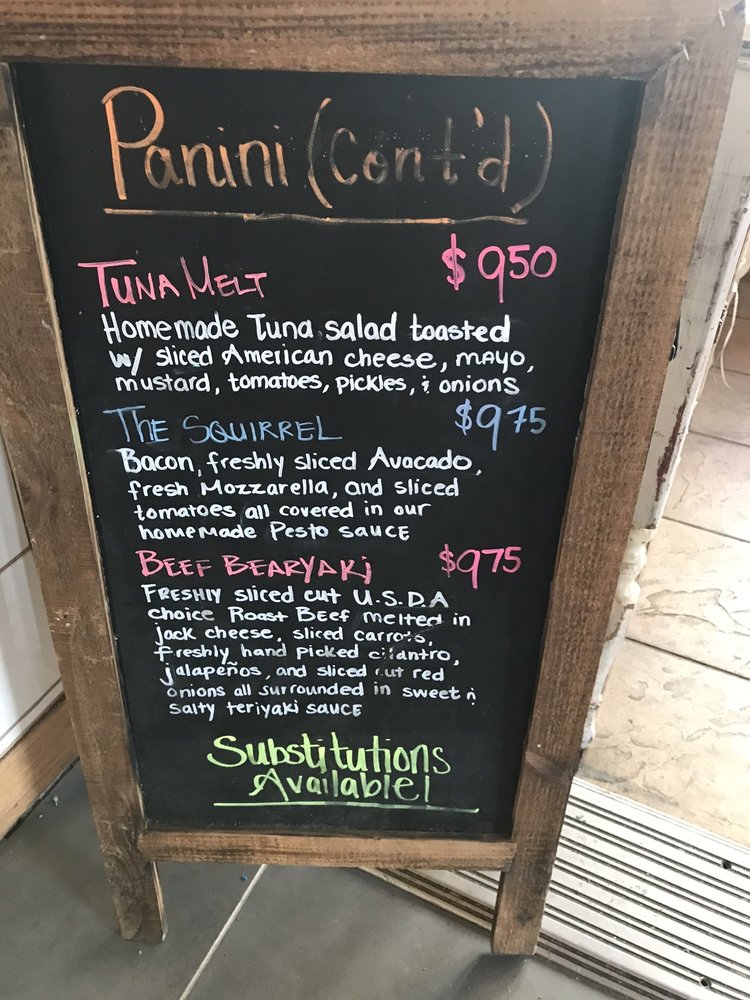 Panini (cont'd)
TUNA MELT $950
Homemade Tuna salad toasted
w/ sliced American cheese, mayo,
mustard, tomatoes, pickles, & onions
THE SQUIRREL $975
Bacon, freshly sliced Avacado,
fresh Mozzarella, and sliced
tomatoes all covered in our
homemade Pesto sauce
BEEF BEARYAKi $975
FRESHlY sliced cut U.S.D.A
choice Roast Beef melted in
jack cheese, sliced carrots,
freshly hand picked cilantro,
jalapeños, and sliced cut red
onions all surrounded in sweet &
salty teriyaki sauce
Substitutions
Available!